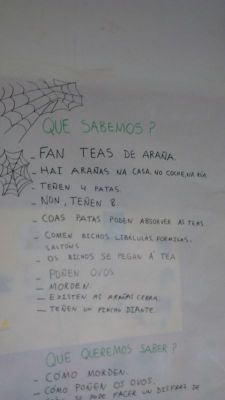 QUE SABEMOS?
- FAN TEAS DE ARAÑA.
- HAI ARAÑAS NA CASA, NO COCHE, NA RÚA
- TEÑEN 4 PATAS.
- NON, TEÑEN 8.
- COAS PATAS PODEN ABSORVER AS TEAS.
- COMEN BICHOS, LIBÉLULAS, FORMIGAS,
SALTÓNS
- OS BICHOS SE PEGAN Á TEA
- POÑEN OVOS
- MORDEN.
- EXISTEN AS ARAÑAS CEBRA.
- TEÑEN UN PINCHO DIANTE.
QUE QUEREMOS SABER?
- CÓMO MORDEN.
- CÓMO POÑEN OS OVOS.
SE PODE FACER UN DISFRAZ DE